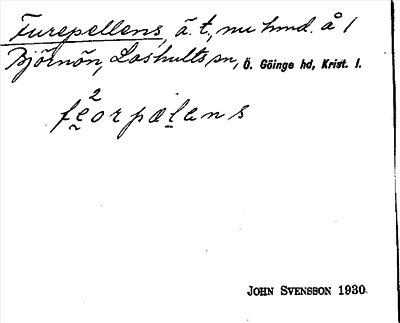 Furepellens, ä. t., nu hmd. å 1
Björnön, Loshults sn, Ö. Göinge hd, Krist. l.
fe²orpælans
JOHN SVENSSON 1930.